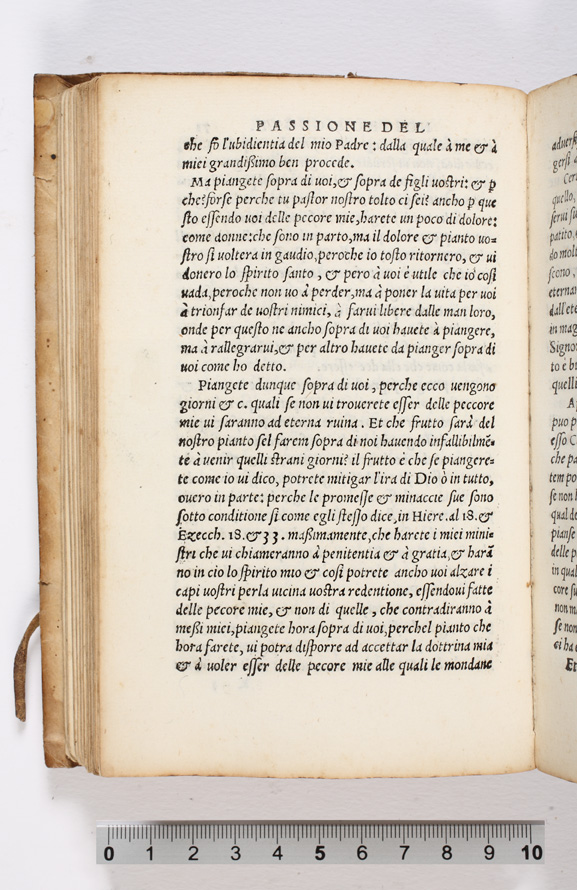 PASSIONE DEL
che fō l'ubidientia del mio Padre : dalla quale à me & à
miei grandißimo ben procede.
Ma piangete sopra di uoi,& sopra de figli uostri: & p
che?forse perche tu pastor nostro tolto ci sei? ancho p que
sto essendo uoi delle pecore mie,harete un poco di dolore:
come donne:che sono in parto,ma il dolore & pianto uo=
stro si uoltera in gaudio,peroche io tosto ritornero, & ui
donero lo spirito santo , & però à uoi è utile che io così
uada,peroche non uo à perder,ma à poner la uita per uoi
à trionfar de uostri nimici, à farui libere dalle man loro,
onde per questo ne ancho sopra di uoi hauete à piangere,
ma à rallegrarui,& per altro hauete da pianger sopra di
uoi come ho detto.
Piangete dunque sopra di uoi , perche ecco uengono
giorni & c. quali se non ui trouerete esser delle pecore
mie ui saranno ad eterna ruina . Et che frutto sarà del
nostro pianto sel farem sopra di noi hauendo infallibilmē=
te à uenir quelli strani giorni? il frutto è che se piangere=
te come io ui dico, potrete mitigar l'ira di Dio ò in tutto,
ouero in parte: perche le promesse & minaccie sue sono
sotto conditione si come egli stesso dice, in Hiere. al 18. &
Ezecch. 18. & 33. maßimamente, che harete i miei mini=
stri che ui chiameranno à penitentia & à gratia, & harā
no in cio lo spirito mio & così potrete ancho uoi alzare i
capi uostri per la uicina uostra redentione, essendoui fatte
delle pecore mie, & non di quelle , che contradiranno à
meßi miei,piangete hora sopra di uoi, perchel pianto che
hora farete, ui potra disporre ad accettar la dottrina mia
& à uoler esser delle pecore mie alle quali le mondane
aduers
gersi
Cer
quello,
patito,
do molt
scono ,
eternam
dall'ete
in mag
Signo
to è b
quelli
A
puo p
esso C
che pa
tem po
se non l
qual de
pianse
delle p
in qual
core su
non m
se non
ci ha
Et
0 1 2 3 4 5 6 7 8 9 10